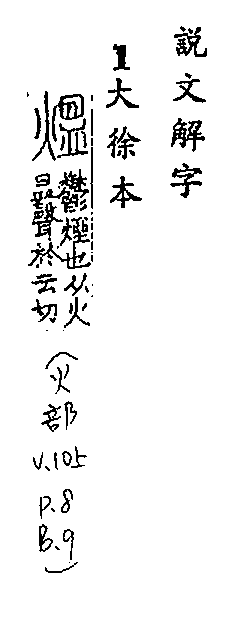 說文解字
1大徐本
熅
鬱煙也从火
𥁕聲於云切
(火部 V.105 P.8 B.9)